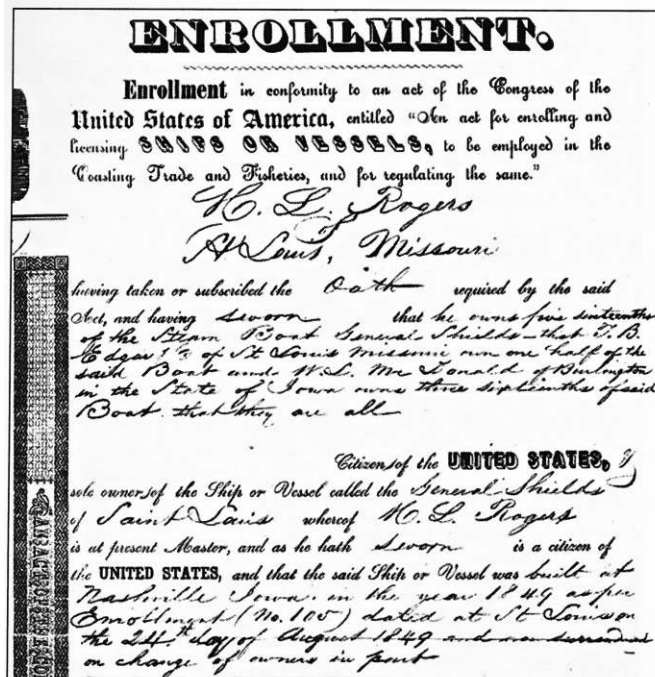 ENROLLMENT.
Enrollment in conformity to an act of the Congress of the
United States of America, entitled "An act for enrolling and
licensing SHIPS OR VESSELS, to be employed in the
Coasting Trade and Fisheries, and for regulating the same."
H. L. Rogers
St Louis, Missouri
having taken or subscribed the Oath required by the said
Act, and having sworn that he owns five sixteenths
of the Steam Boat General Shields – that T. B.
Edgar of St Louis Missouri own one half of the
said Boat and W. L. Mc Donald of Burlington
in the State of Iowa owns three sixteenths of said
Boat that they are all
Citizens of the UNITED STATES, &
sole owners of the Ship or Vessel called the General Shields
of Saint Louis whereof H. L. Rogers
is at present Master, and as he hath sworn is a citizen of
the UNITED STATES, and that the said Ship or Vessel was built at
Nashville Iowa in the year 1849 as per
Enrollment (No. 100) dated at St Louis on
the 24th day of August 1849 and now surrendered
on change of owners in part